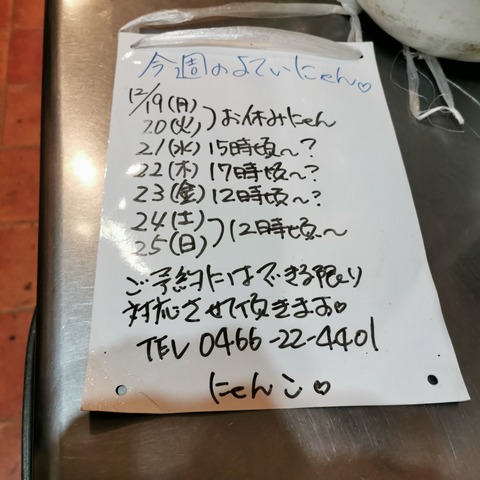 今週のよていにゃん♡
12/19(月)
20(火) )お休みにゃん
21(水) 15時頃～?
22(木) 17時頃～?
23(金) 12時頃～?
24(土)
25(日) )12時頃～
ご予約にはできる限り
対応させて頂きます♡
TEL 0466-22-4401
にゃんこ♡